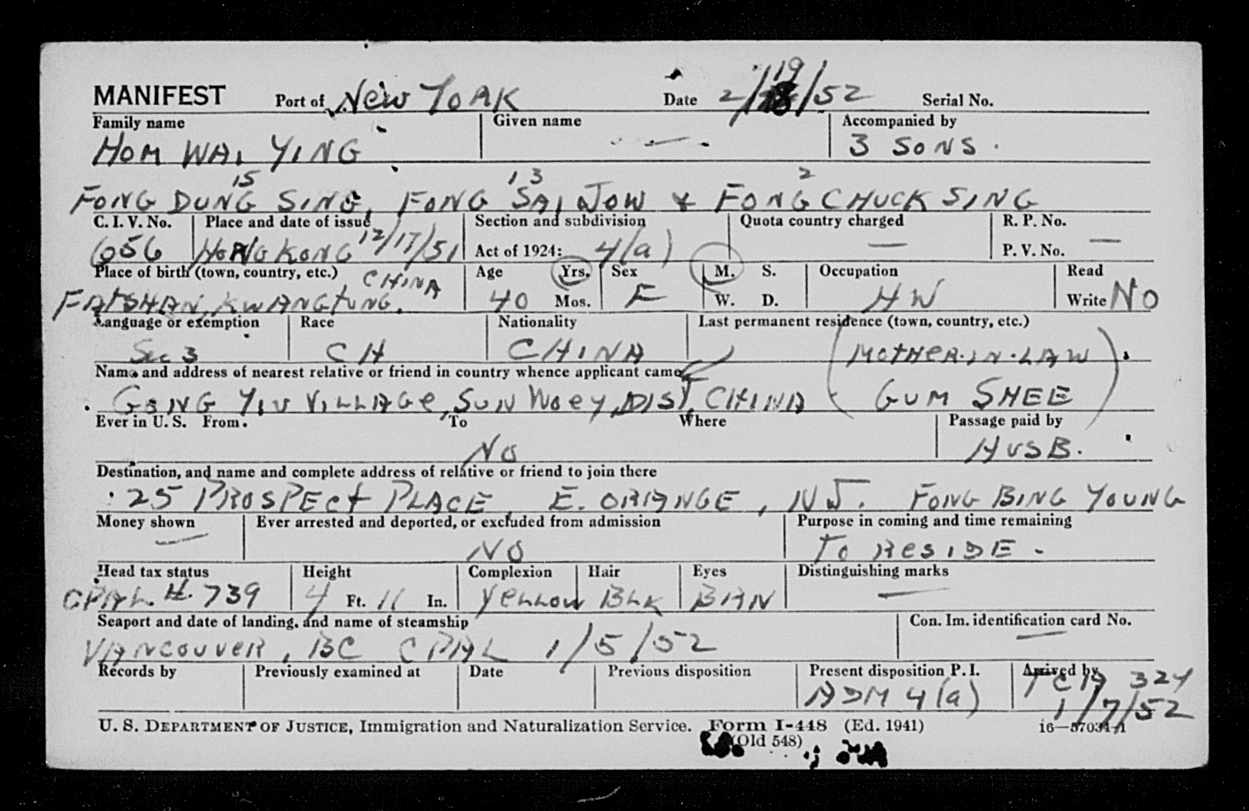 MANIFEST Port of New York Date 2/19/52 Serial No.
Family name Given name Accompanied by
Hom Wai Ying — 3 Sons.
15 13 2
Fong Dung Sing, Fong Sai Jow & Fong Chuck Sing
C. I. V. No. Place and date of issue Section and subdivision Quota country charged R. P. No.
656 Hong Kong 12/17/51 Act of 1924: 4(a) — P. V. No. —
Place of birth (town, country, etc.) Age Yrs. Sex M. S. Occupation Read
Fatshan, Kwangtung. China 40 Mos. F W. D. HW Write No
Language or exemption Race Nationality Last permanent residence (town, country, etc.)
Sec 3 CH China (Mother-in-law
Name and address of nearest relative or friend in country whence applicant came
Gong Yiu Village, Sun Woey, Dist, China Gum Shee)
Ever in U. S. From To Where Passage paid by
No Husb.
Destination, and name and complete address of relative or friend to join there
25 Prospect Place E. Orange, NJ. Fong Bing Young
Money shown Ever arrested and deported, or excluded from admission Purpose in coming and time remaining
— No To Reside.
Head tax status Height Complexion Hair Eyes Distinguishing marks
CPAL #. 739 4 Ft. 11 In. Yellow Blk Brn —
Seaport and date of landing, and name of steamship Con. Im. identification card No.
Vancouver, BC CPAL 1/5/52 —
Records by Previously examined at Date Previous disposition Present disposition P. I. Arrived by
Adm 4(a) 324
1/7/52
U. S. Department of Justice, Immigration and Naturalization Service. Form I-448 (Ed. 1941)
(Old 548)